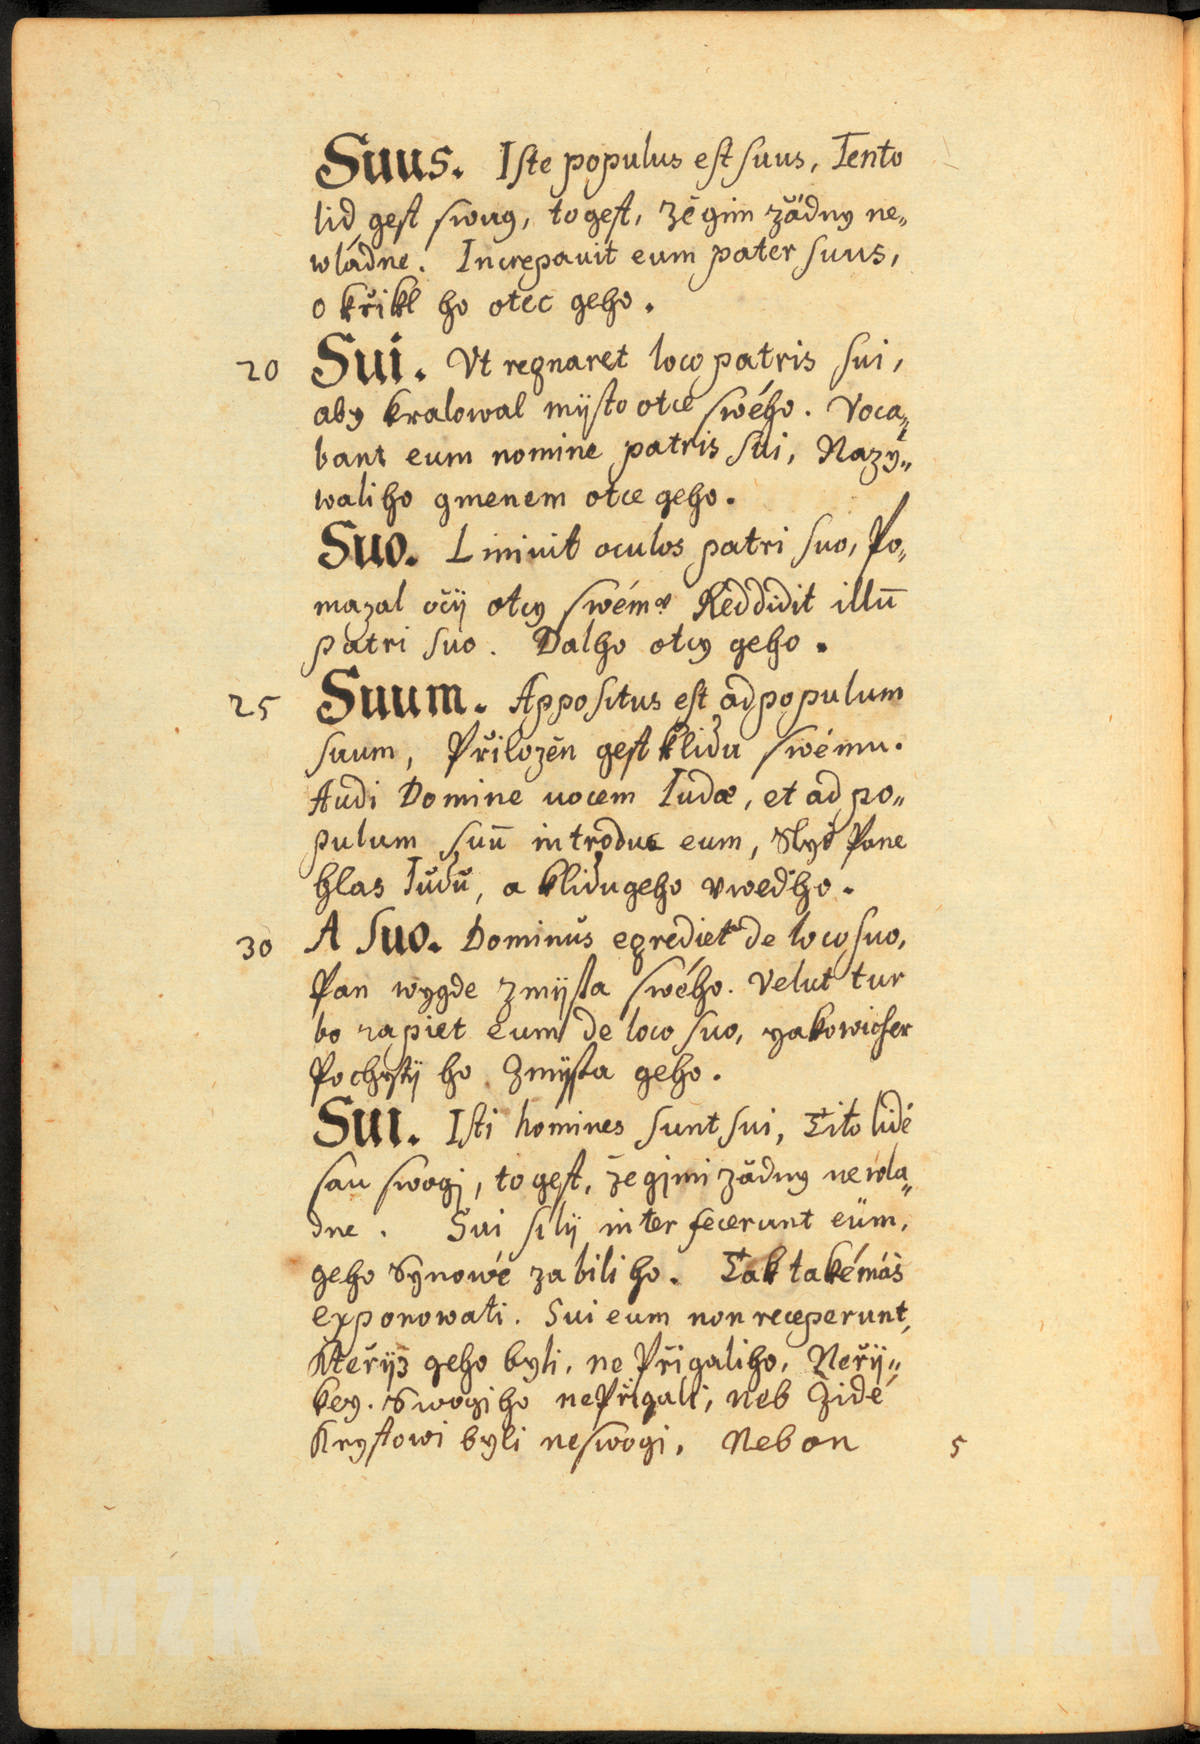 Suus. Iste populus est suus, Tento
lid gest swug, to gest, že gim žádny ne„
wládne. Increpauit eum pater suus,
o křikl ho otec geho.
20 Sui. Vt regnaret loco patris sui,
aby kralowal mijsto otce swého. Voca„
bant eum nomine patris sui, Nazy„
wali ho gmenem otce geho.
Suo. Liniuit oculos patri suo, Po„
mazal očij otcy swému Reddidit illū
patri suo. Dal ho otcy geho.
25 Suum. Appositus est ad populum
suum, Přiložen gest k lidu swému.
Audi Domine uocem Iudæ, et ad po„
pulum suū introduc eum, Slyš Pane
hlas Iudů, a k lidu geho vwed ho.
30 A suo. Dominus egrediet de loco suo,
Pan wygde z mijsta swého. Velut tur
bo rapiet eum de loco suo, yakowicher
Pochytij ho z mijsta geho.
Sui. Isti homines sunt sui, Tito lidé
sau swogj, to gest, že gjmi žádny newla„
dne. Sui filij interfecerunt eum,
geho Synowé zabili ho. Tak také máš
exponowati. Sui eum non receperunt,
Kteřijž geho byli, ne Přigali ho, Neřij„
key. Swogi ho ne Přigali, neb Židé
Krystowi byli ne swogi. Neb on
5
MZK MZK